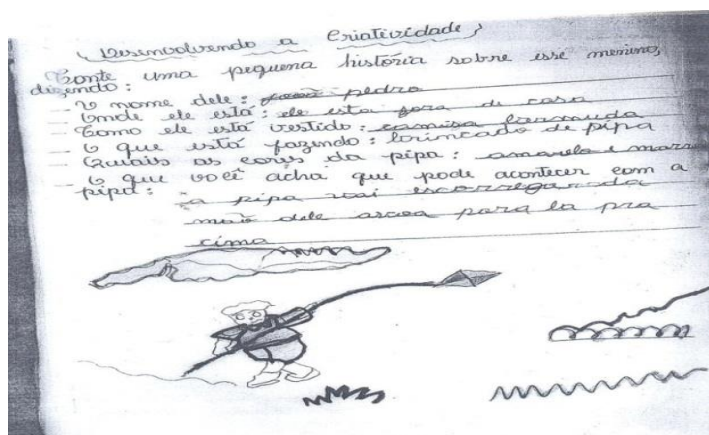 Desenvolvendo a Criatividade
Conte uma pequena história sobre esse menino,
dizendo:
— O nome dele: pedro
— Onde ele está: ele esta fora di casa
— Como ele está vestido: camisa bermuda
— O que está fazendo: brincado de pipa
— Quais as cores da pipa: amarelo e marr
— O que você acha que pode acontecer com a
pipa:
a pipa vai escorregar da
mão dele para la pra
cima